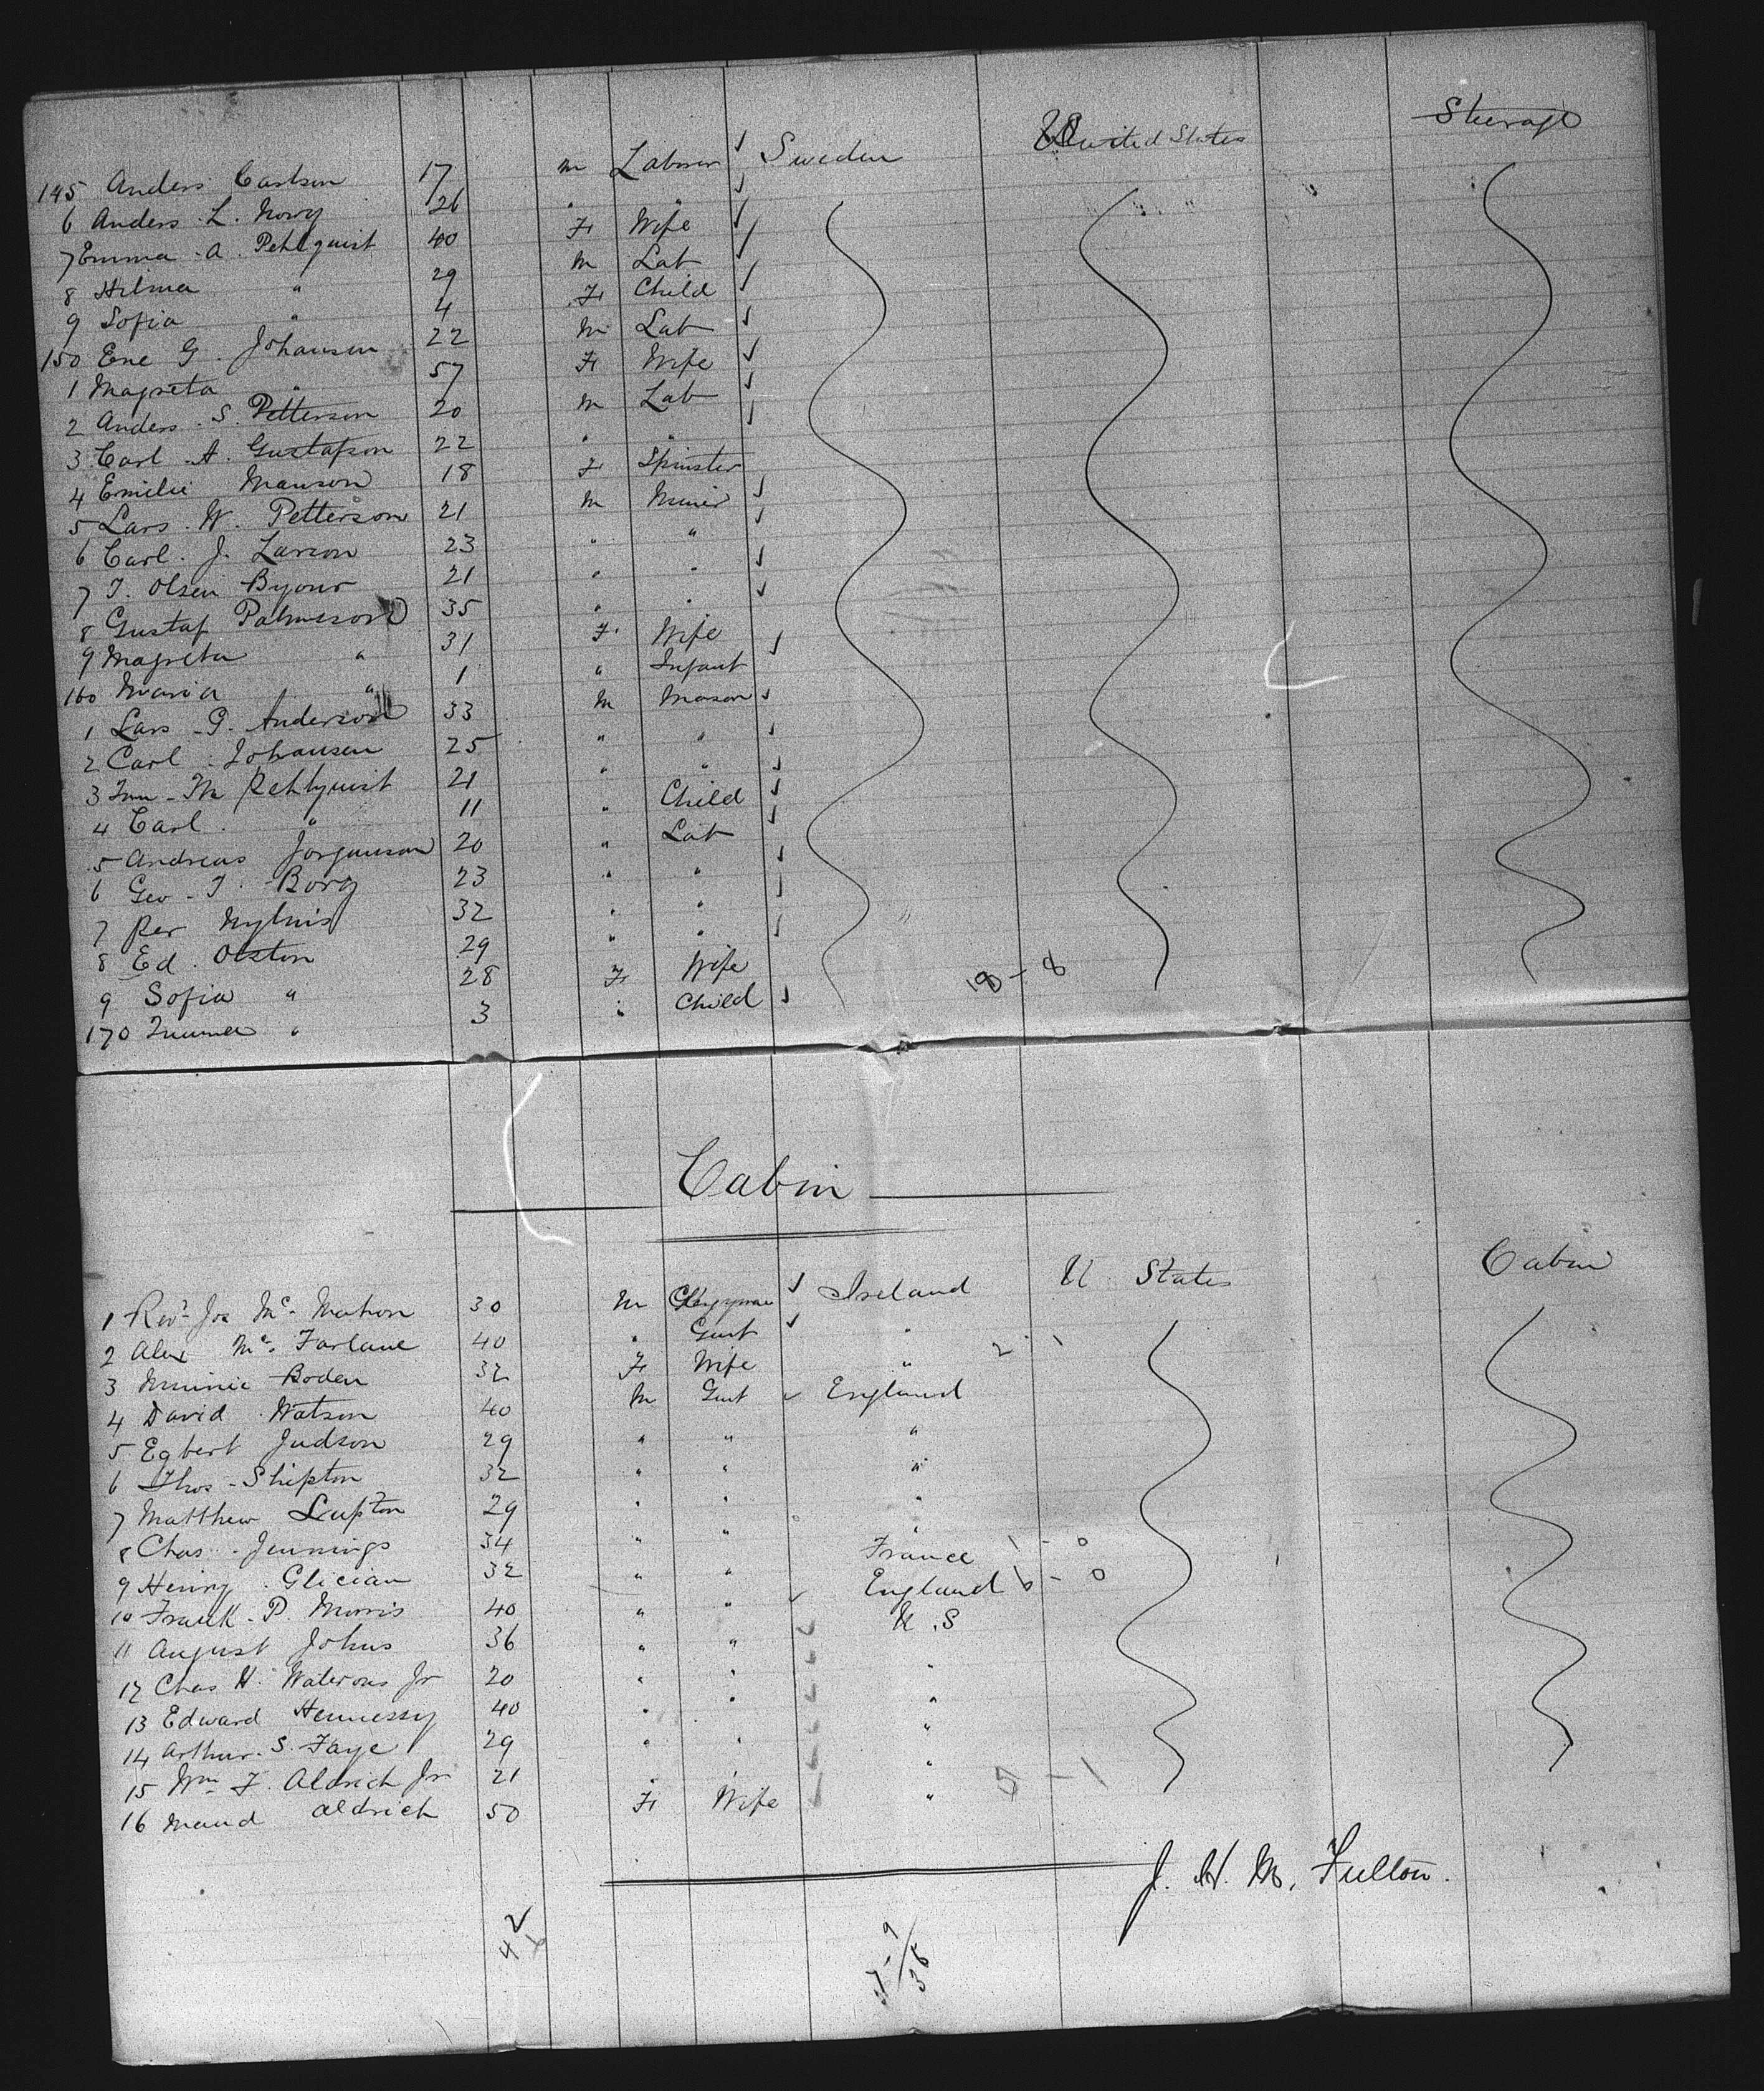 Steerage
145 Anders Carlson 17 m Laborer Sweden United States
6 Anders L. Norry 26 " "
7 Emma A. Pehlquist 40 F Wife
8 Hilma " 29 m Lab
9 Sofia " 4 F Child
150 Ene G. Johansen 22 m Lab
1 Magreta " 57 F Wife
2 Anders S. Petterson 20 m Lab
3 Carl A. Gustafson 22 " "
4 Emilie Manson 18 F Spinster
5 Lars W. Petterson 21 m Miner
6 Carl J. Larson 23 " "
7 T. Olsen Byour 21 " "
8 Gustaf Palmeson 35 " "
9 Magreta " 31 F Wife
160 Maria " 1 " Infant
1 Lars P. Anderson 33 m Mason
2 Carl Johansen 25 " "
3 Pehlquist 21 " "
4 Carl " 11 " Child
5 Andreas Jorganson 20 " Lab
6 Geo T. Borg 23 " "
7 Per 32 " "
8 Ed. Olston 29 " "
9 Sofia " 28 F Wife
170 " 3 " Child
18 - 8
Cabin
Cabin
1 Revd Jos Mc Mahon 30 m Clergyman Ireland U States
2 Alex Mc Farlane 40 " Gent "
3 Minnie Boden 32 F Wife " 2 - 1
4 David Watson 40 m Gent England
5 Egbert Judson 29 " " "
6 Thos Shipton 32 " " "
7 Matthew Lupton 29 " " "
8 Chas Jennings 34 " " "
9 Henry Glician 32 " " France 1 - 0
10 Frank P. Morris 40 " " England 6 - 0
11 August Johns 36 " " U.S
12 Chas H. Waterous Jr 20 " " "
13 Edward Hennessy 40 " " "
14 Arthur S. Faye 29 " " "
15 Wm F. Aldrich Jr 21 " " "
16 Maud Aldrich 50 F Wife " 5 - 1
J. H. M. Fulton.